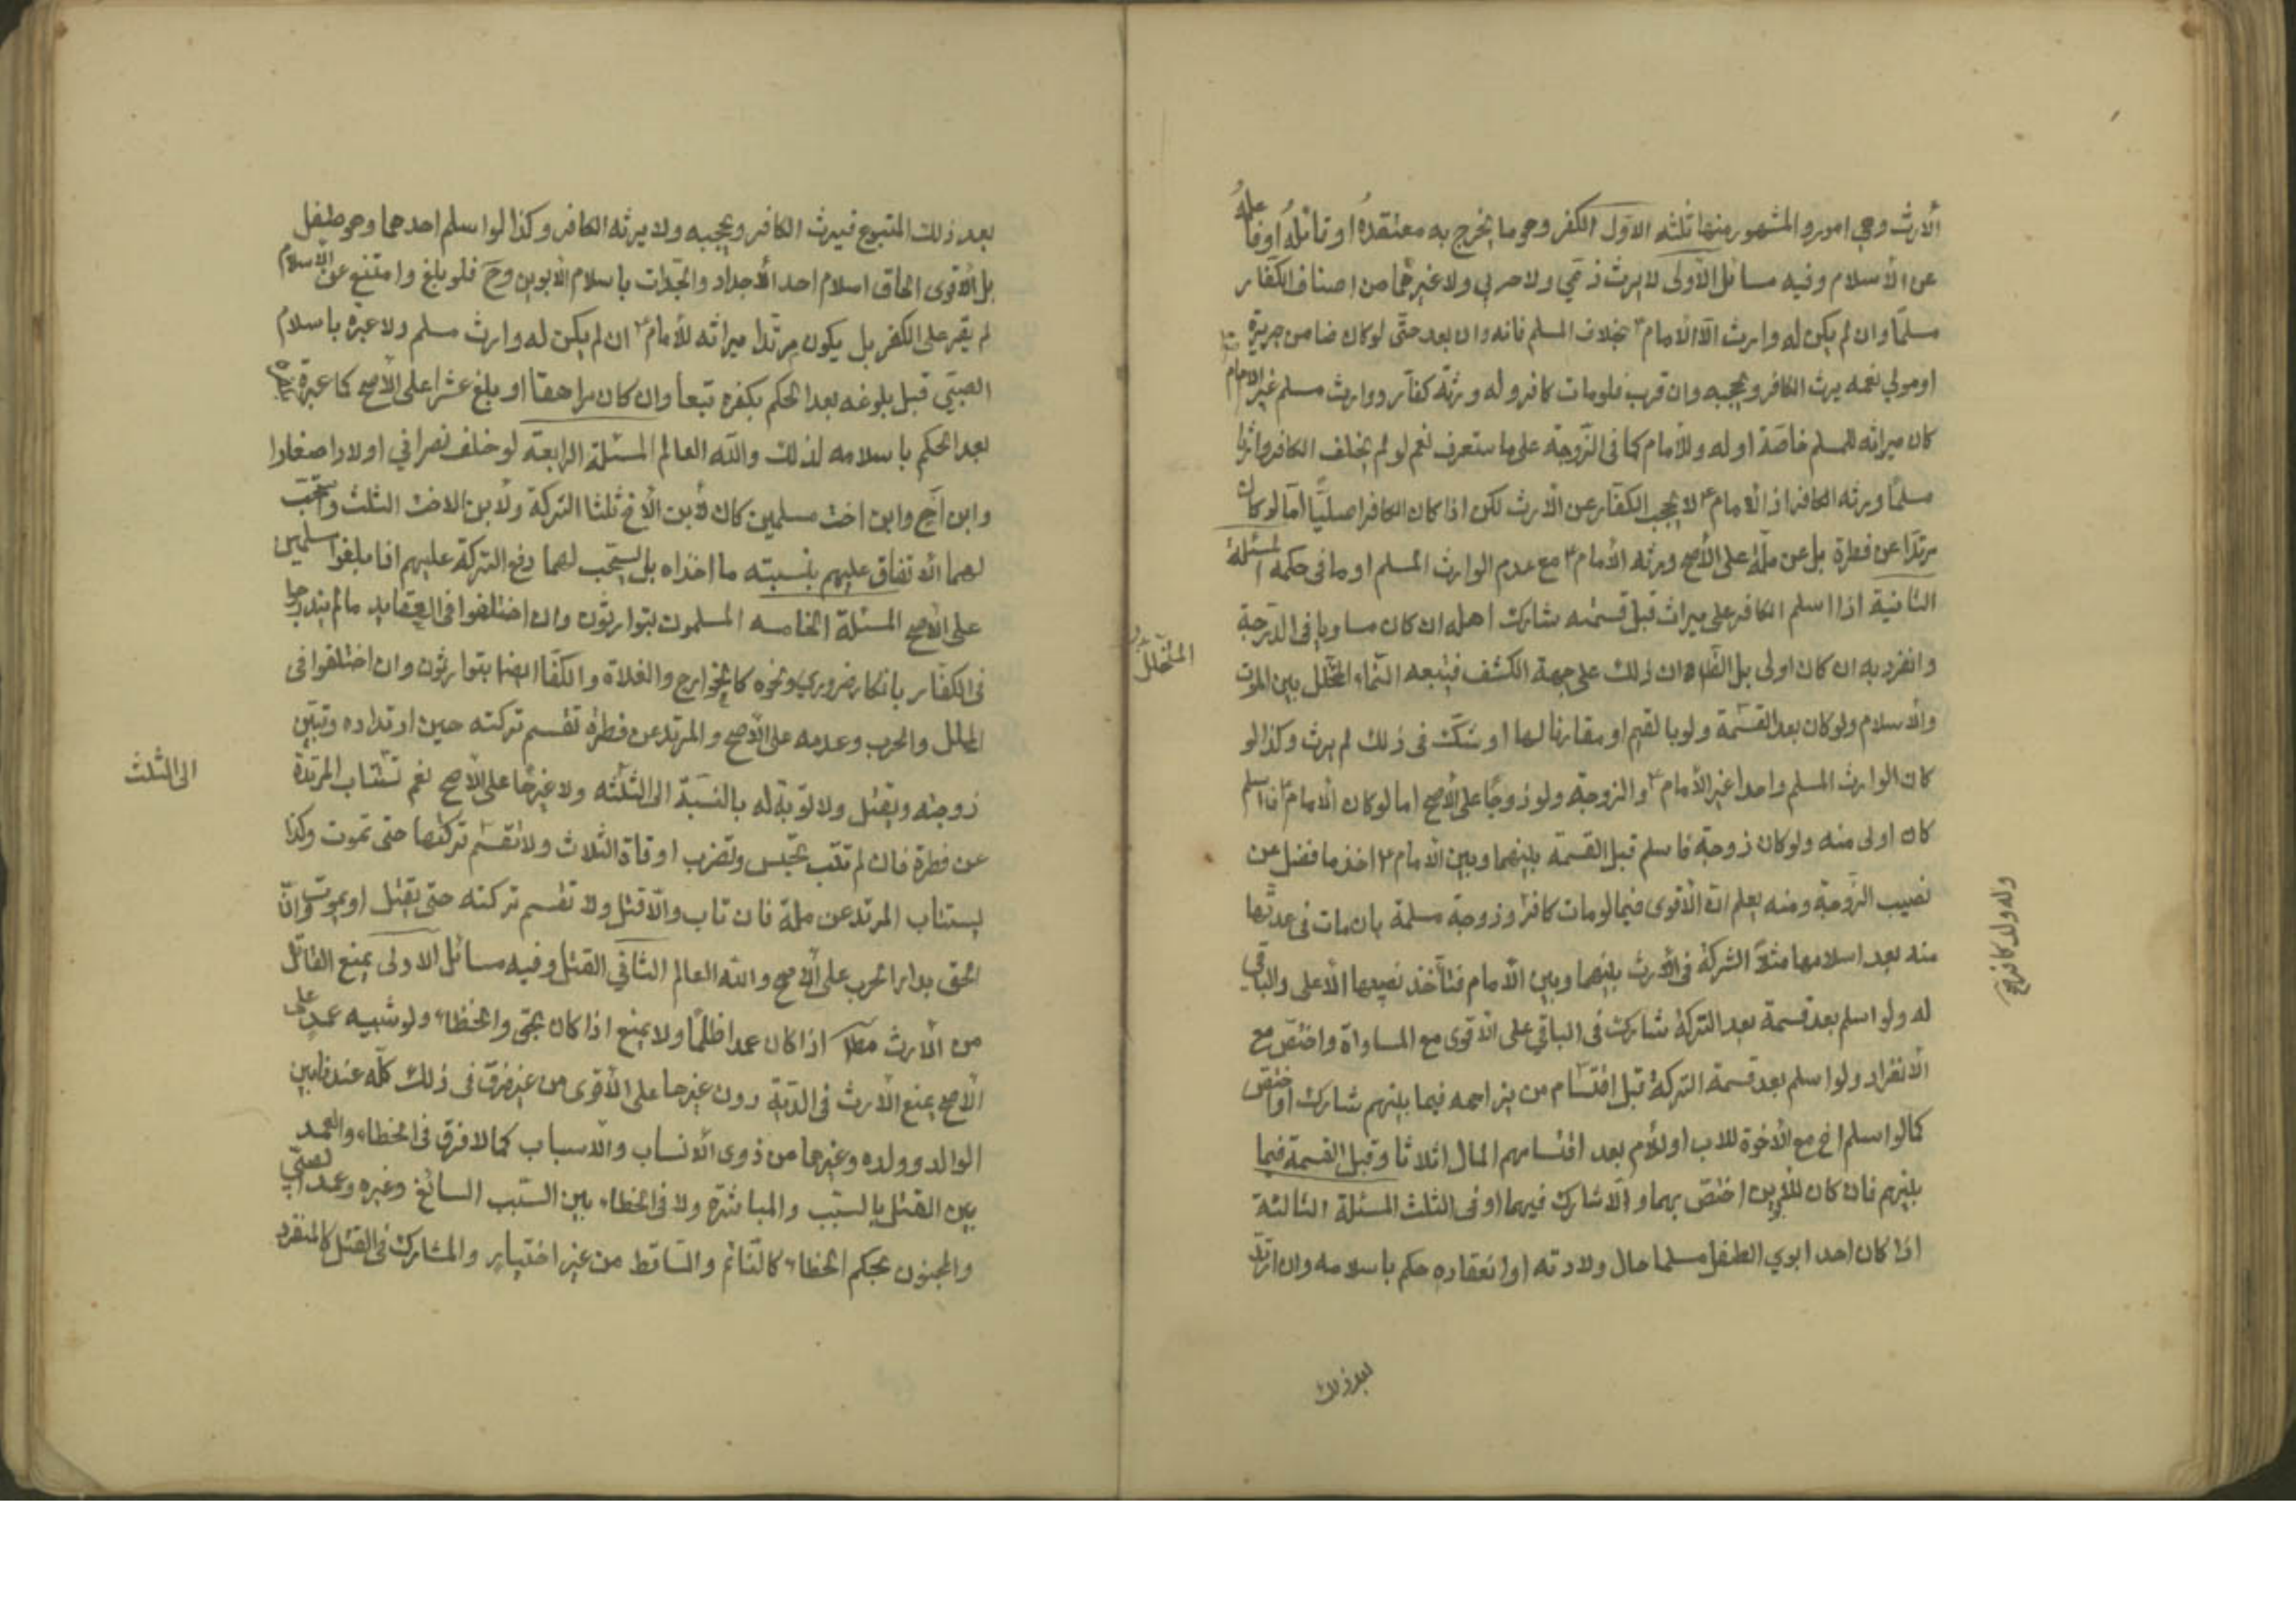 الأرث وهي امور والمشهور منها ثلثه الاول الكفر وهو ما يخرج به معتقده او قائله او فاعله
عن الأسلام وفيه مسائل الأولى لا يرث ذمي ولا حربي ولا غيرهما من اصناف الكفار
مسلما وان لم يكن له وارث الا الامام ع بخلاف المسلم فانه وان بعد حتى لو كان ضامن جريرة
او مولي نعمه يرث الكافر ويحجبه وان قرب فلو مات كافر وله ورثة كفار ووارث مسلم غير الامام
كان ميراثه للمسلم خاصة او له وللأمام كما فى الزوجة على ما ستعرف نعم لو لم يخلف الكافر وارثا
مسلما ورثه الكافر اذ الامام ع لا يحجب الكفار عن الأرث لكن اذا كان الكافر اصليا اما لو كان
مرتدا عن فطرة بل عن ملة على الأصح ورثه الأمام ع مع عدم الوارث المسلم او ما فى حكمه المسئلة
الثانية اذا اسلم الكافر على ميراث قبل قسمته شارك اهله ان كان مساويا فى الدرجة
وانفرد به ان كان اولى بل الظاهر ان ذلك على جهة الكشف فيتبعه النماء المتخلل بين الموت
المتخلل
والأسلام ولو كان بعد القسمة ولو بالقيم او مقارنا لها او شك فى ذلك لم يرث وكذا لو
كان الوارث المسلم واحدا غير الأمام ع والزوجة ولو زوجا على الأصح اما لو كان الامام ع فاسلم
كان اولى منه ولو كان زوجة فاسلم قبل القسمة بينهما وبين الامام ع اخذ ما فضل عن
نصيب الزوجة ومنه يعلم ان الأقوى فيما لو مات كافر وزوجة مسلمة بان مات فى عدتها
وله ولد كافر
منه بعد اسلامها مثلا الشركة فى الأرث بينهما وبين الأمام فتأخذ نصيبها الأعلى والباقي
له ولو اسلم بعد قسمة بعد التركة شارك فى الباقي على الأقوى مع المساواة واختص مع
الأنفراد ولو اسلم بعد قسمة التركة قبل اقتسام من يزاحمه فيما بينهم شارك او اختص
كما لو اسلم اخ مع الأخوة للاب او للأم بعد اقتسامهم المال اثلاثا وقبل القسمة فيما
بينهم فان كان للأبوين اختص بهما والا شارك فيهما او فى الثلث المسئلة الثالثة
اذا كان احد ابوي الطفل مسلما حال ولادته او انعقاده حكم باسلامه وان ارتد
بعد ذلك
بعد ذلك المتبوع فيرث الكافر ويحجبه ولا يرثه الكافر وكذا لو اسلم احدهما وهو طفل
بل الأقوى الحاق اسلام احد الأجداد والجدات باسلام الأبوين وح فلو بلغ وامتنع عن الأسلام
لم يقر على الكفر بل يكون مرتدا ميراثه للأمام ع ان لم يكن له وارث مسلم ولا عبرة باسلام
الصبي قبل بلوغه بعد الحكم بكفره تبعا وان كان مراهقا او بلغ عشرا على الأصح كما عبرة
بعد الحكم باسلامه لذلك والله العالم المسئلة الرابعة لو خلف نصراني اولادا صغارا
وابن اخ وابن اخت مسلمين كان لأبن الأخ ثلثا التركة ولأبن الاخت الثلث ويستحب
لهما الأنفاق عليهم بنسبته ما اخذاه بل يستحب لهما دفع التركة عليهم اذا بلغوا مسلمين
على الأصح المسئلة الخامسه المسلمون يتوارثون وان اختلفوا فى العقايد ما لم يندرجوا
فى الكفار بانكار ضروري ونحوه كالخوارج والغلاة والكفار ايضا يتوارثون وان اختلفوا فى
الملل والحرب وعدمه على الأصح والمرتد عن فطرة تقسم تركته حين ارتداده وتبين
زوجته ويقتل ولا توبة له بالنسبة الى الثلثه ولا غيرها على الأصح نعم تستتاب المرتدة
الى الثلث
عن فطرة فان لم تتب تحبس وتضرب اوقاة الثلاث ولا تقسم تركتها حتى تموت وكذا
يستتاب المرتد عن ملة فان تاب والا قتل ولا تقسم تركته حتى يقتل او يموت وان
الحق بدار الحرب على الأصح والله العالم الثاني القتل وفيه مسائل الاولى يمنع القاتل
من الأرث اذا كان عمدا ظلما ولا يمنع اذا كان بحق والخطاء ولو شبيه عمد على
الأصح يمنع الأرث فى الدية دون غيرها على الأقوى من غير فرق فى ذلك كله عندنا بين
الوالد وولده وغيرهما من ذوى الأنساب والأسباب كما لا فرق فى الخطاء والعمد
بين القتل بالسبب والمباشرة ولا فى الخطاء بين السبب السائغ وغيره وعمد الصبي
والمجنون بحكم الخطاء كالنائم والساقط من غير اختيار والمشارك فى القتل كالمنفرد